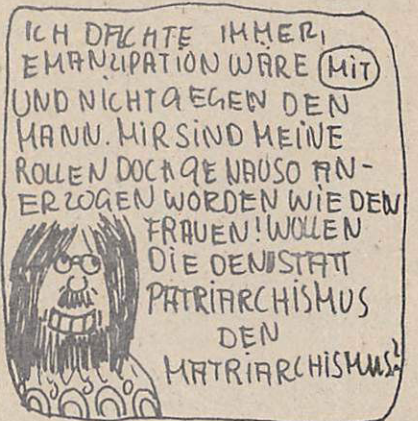 ICH DACHTE IMMER,
EMANZIPATION WÄRE MIT
UND NICHT GEGEN DEN
MANN. MIR SIND MEINE
ROLLEN DOCH GENAUSO AN-
ERZOGEN WORDEN WIE DEN
FRAUEN! WOLLEN
DIE DENN STATT
PATRIARCHISMUS
DEN
MATRIARCHISMUS?